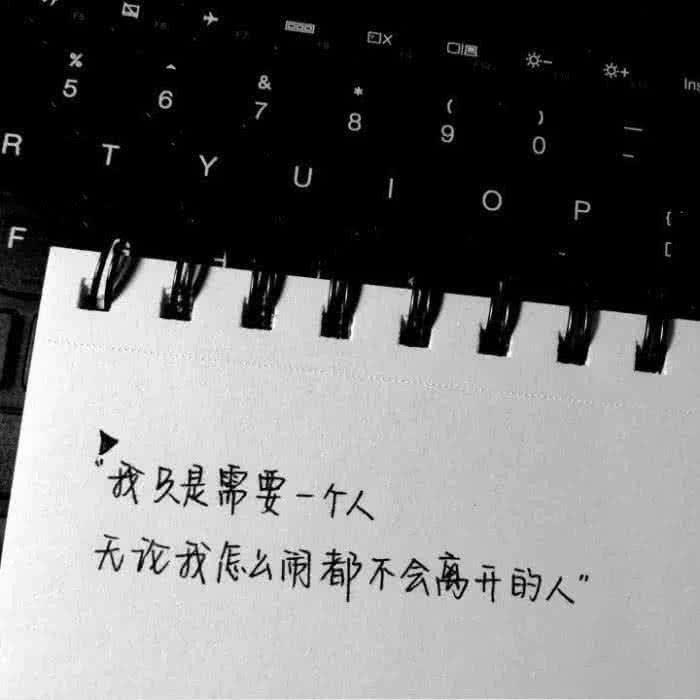 F5 F6 F7 F8
% ^ & * ( ) —
5 6 7 8 9 0 -
Ins
R T Y U I O P {
[
F G
"我只是需要一个人
无论我怎么闹都不会离开的人"